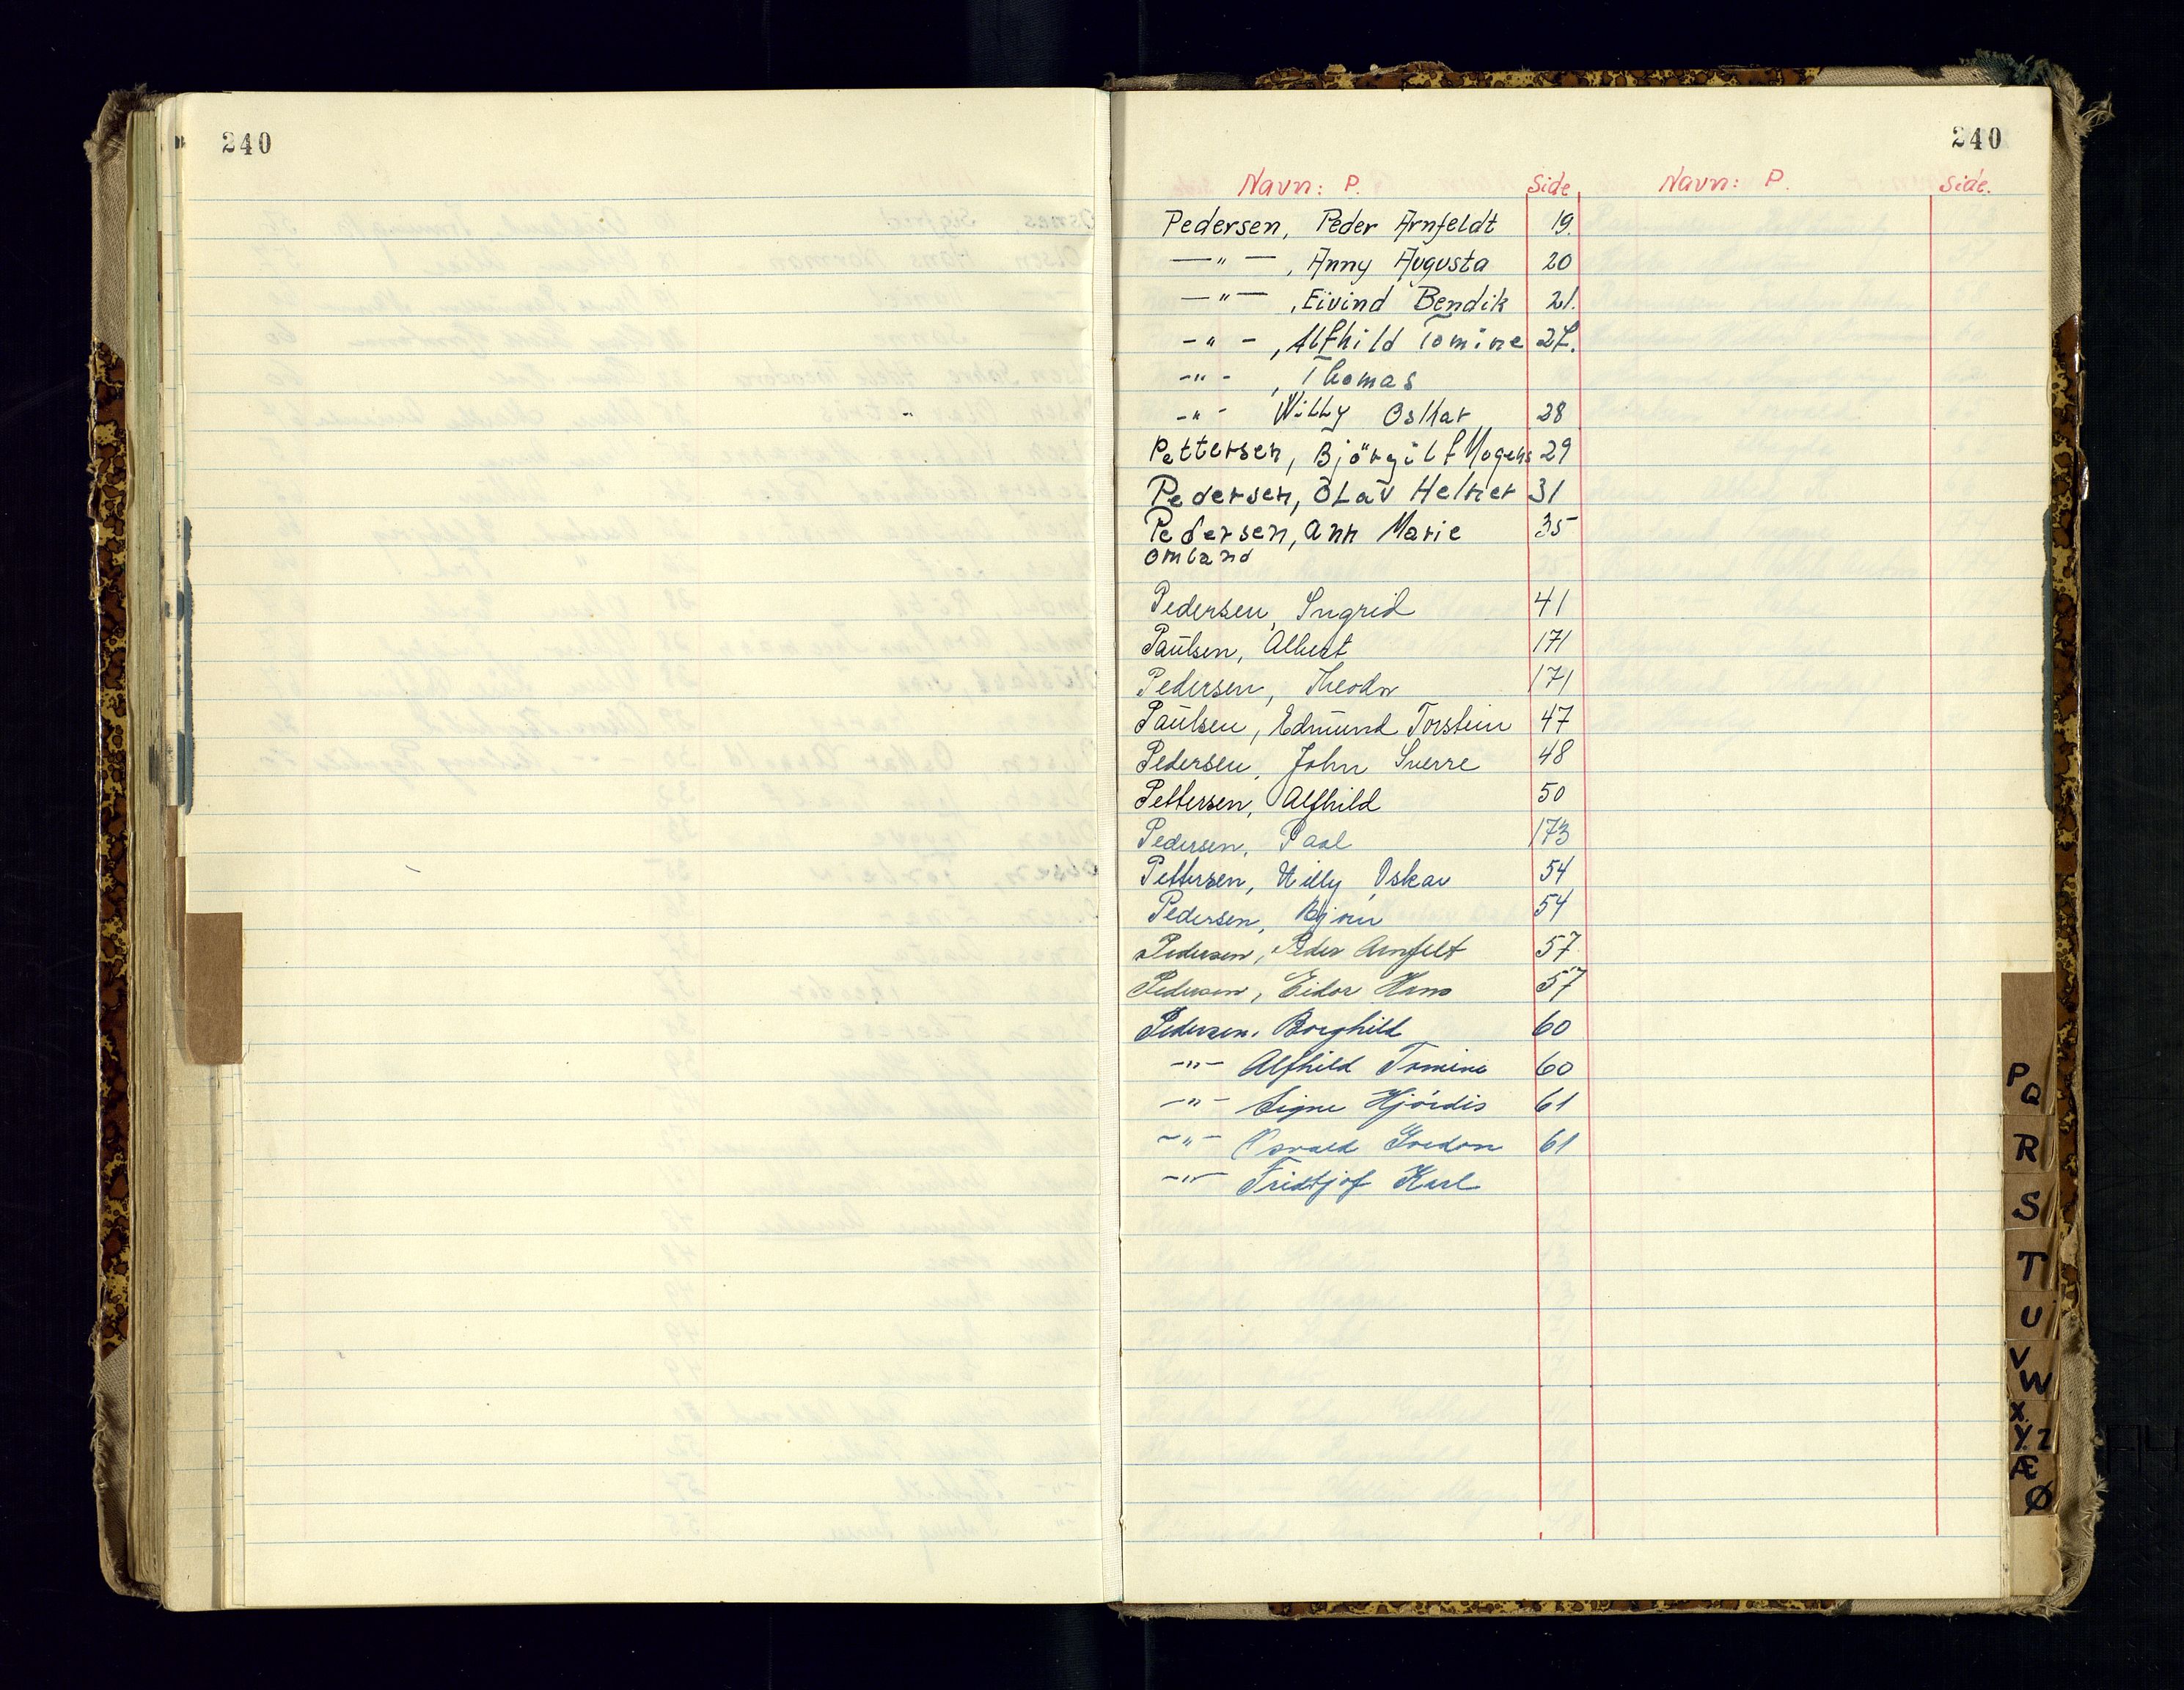 240
240
Navn: P. Side Navn: P. Side.
Pedersen, Peder Arnfeldt 19.
—"— , Anny Augusta 20
—"— , Eivind Bendik 21.
-"- , Alfhild Tomine 27.
-"- , Thomas
-"- Willy Oskar 28
Pettersen, Björgulf Mogens 29
Pedersen, Olav Helner 31
Pedersen, Ann Marie 35
Omland
Pedersen, Ingrid 41
Paulsen, Albert 171
Pedersen, Theodor 171
Paulsen, Edmund Torstein 47
Pedersen, John Sverre 48
Pettersen, Alfhild 50
Pedersen, Paal 173
Pettersen, Willy Oskar 54
Pedersen, Bjørn 54
Pedersen, Peder Arnfelt 57
Pedersen, Eidor Hans 57
Pedersen, Borghild 60
-"- Alfhild Tomine 60
-"- Signe Hjördis 61
-"- Osvald Gordon 61
-"- Fridtjof Karl
P
Q
R
S
T
U
V
W
X
Y Z
Æ
Ø